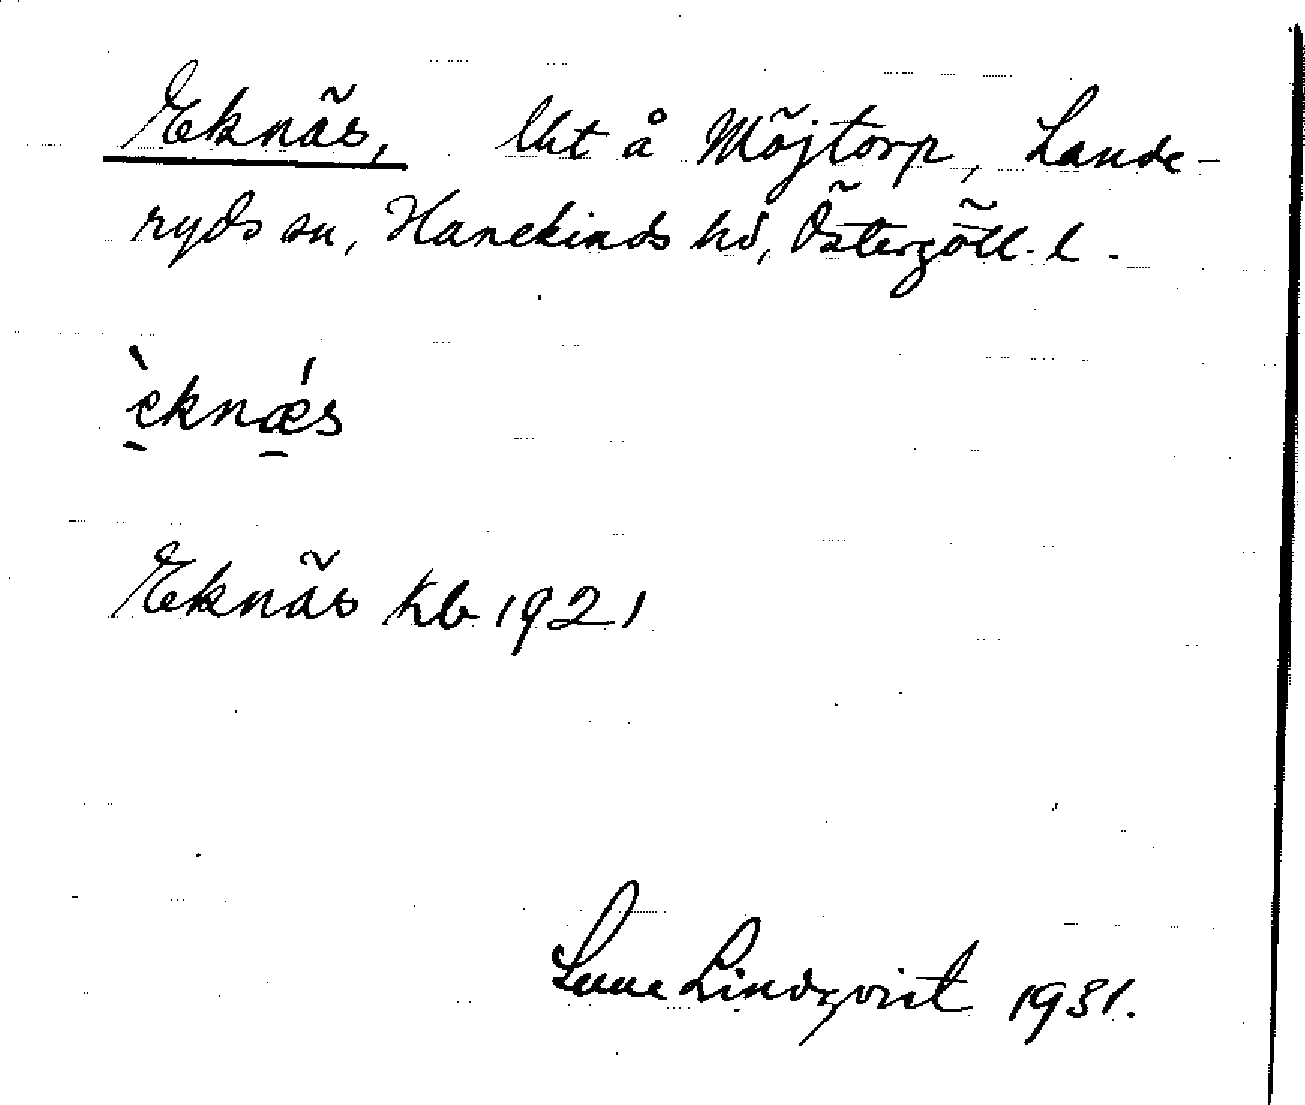 Eknäs, lht å Möjtorp, Lande-
ryds sn, Hanekinds hd, Östergötl. l.
èknǽs
Eknäs Kb 1921
Sune Lindqvist 1931.